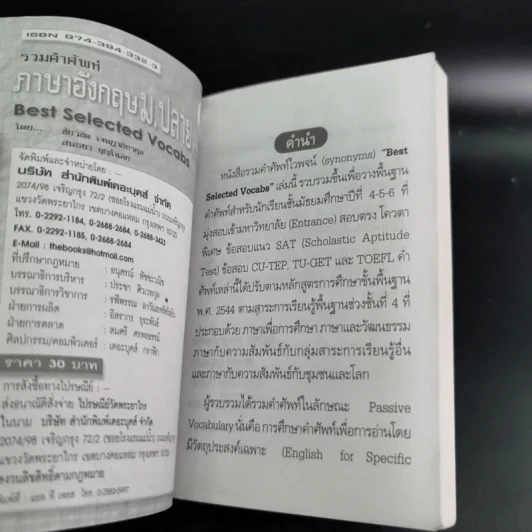 ISBN 974-394-332-3
รวมคำศัพท์
ภาษาอังกฤษม.ปลาย
Best Selected Vocabs
โดย...
จัดพิมพ์และจำหน่ายโดย : —
บริษัท สำนักพิมพ์เดอะบุคส์ จำกัด
2074/98 เจริญกรุง 72/2 (ซอยโรงแรมแม่น้ำ ถนนเจริญกรุง)
แขวงวัดพระยาไกร เขตบางคอแหลม กรุงเทพฯ 10120
โทร. 0-2292-1184, 0-2688-2684, 0-2688-2423
FAX. 0-2292-1185, 0-2688-2684
E-Mail : thebooks@hotmail.com
ที่ปรึกษากฎหมาย :
บรรณาธิการบริหาร : ประชา
บรรณาธิการวิชาการ :
ฝ่ายการผลิต :
ฝ่ายการตลาด : สมศรี
ศิลปกรรม/คอมพิวเตอร์ : เดอะบุคส์ กราฟิก
ราคา 30 บาท
การสั่งซื้อทางไปรษณีย์ : —
ส่งธนาณัติสั่งจ่าย ไปรษณีย์วัดพระยาไกร
ในนาม บริษัท สำนักพิมพ์เดอะบุคส์ จำกัด
2074/98 เจริญกรุง 72/2 (ซอยโรงแรมแม่น้ำ ถนนเจริญกรุง)
แขวงวัดพระยาไกร เขตบางคอแหลม กรุงเทพฯ 10120
สงวนลิขสิทธิ์ตามกฎหมาย
พิมพ์ที่ : แอล ที เพรส โทร.
คำนำ
หนังสือรวมคำศัพท์ไวพจน์ (synonyms) "Best
Selected Vocabs" เล่มนี้ รวบรวมขึ้นเพื่อวางพื้นฐาน
คำศัพท์สำหรับนักเรียนชั้นมัธยมศึกษาปีที่ 4-5-6 ที่
มุ่งสอบเข้ามหาวิทยาลัย (Entrance) สอบตรง โควตา
พิเศษ ข้อสอบแนว SAT (Scholastic Aptitude
Test) ข้อสอบ CU-TEP, TU-GET และ TOEFL คำ
ศัพท์เหล่านี้ได้ปรับตามหลักสูตรการศึกษาขั้นพื้นฐาน
พ.ศ. 2544 ตามสาระการเรียนรู้พื้นฐานช่วงชั้นที่ 4 ที่
ประกอบด้วย ภาษาเพื่อการศึกษา ภาษาและวัฒนธรรม
ภาษากับความสัมพันธ์กับกลุ่มสาระการเรียนรู้อื่น
และภาษากับความสัมพันธ์กับชุมชนและโลก
ผู้รวบรวมได้รวมคำศัพท์ในลักษณะ Passive
Vocabulary นั่นคือ การศึกษาคำศัพท์เพื่อการอ่านโดย
มีวัตถุประสงค์เฉพาะ (English for Specific